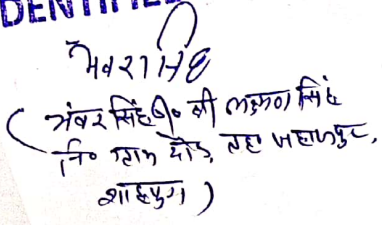 DENTIFIE
भंवरसिंह
( भंवर सिंह S/o श्री लक्ष्मण सिंह
नि० ग्राम तह जहाजपुर,
शाहपुरा )